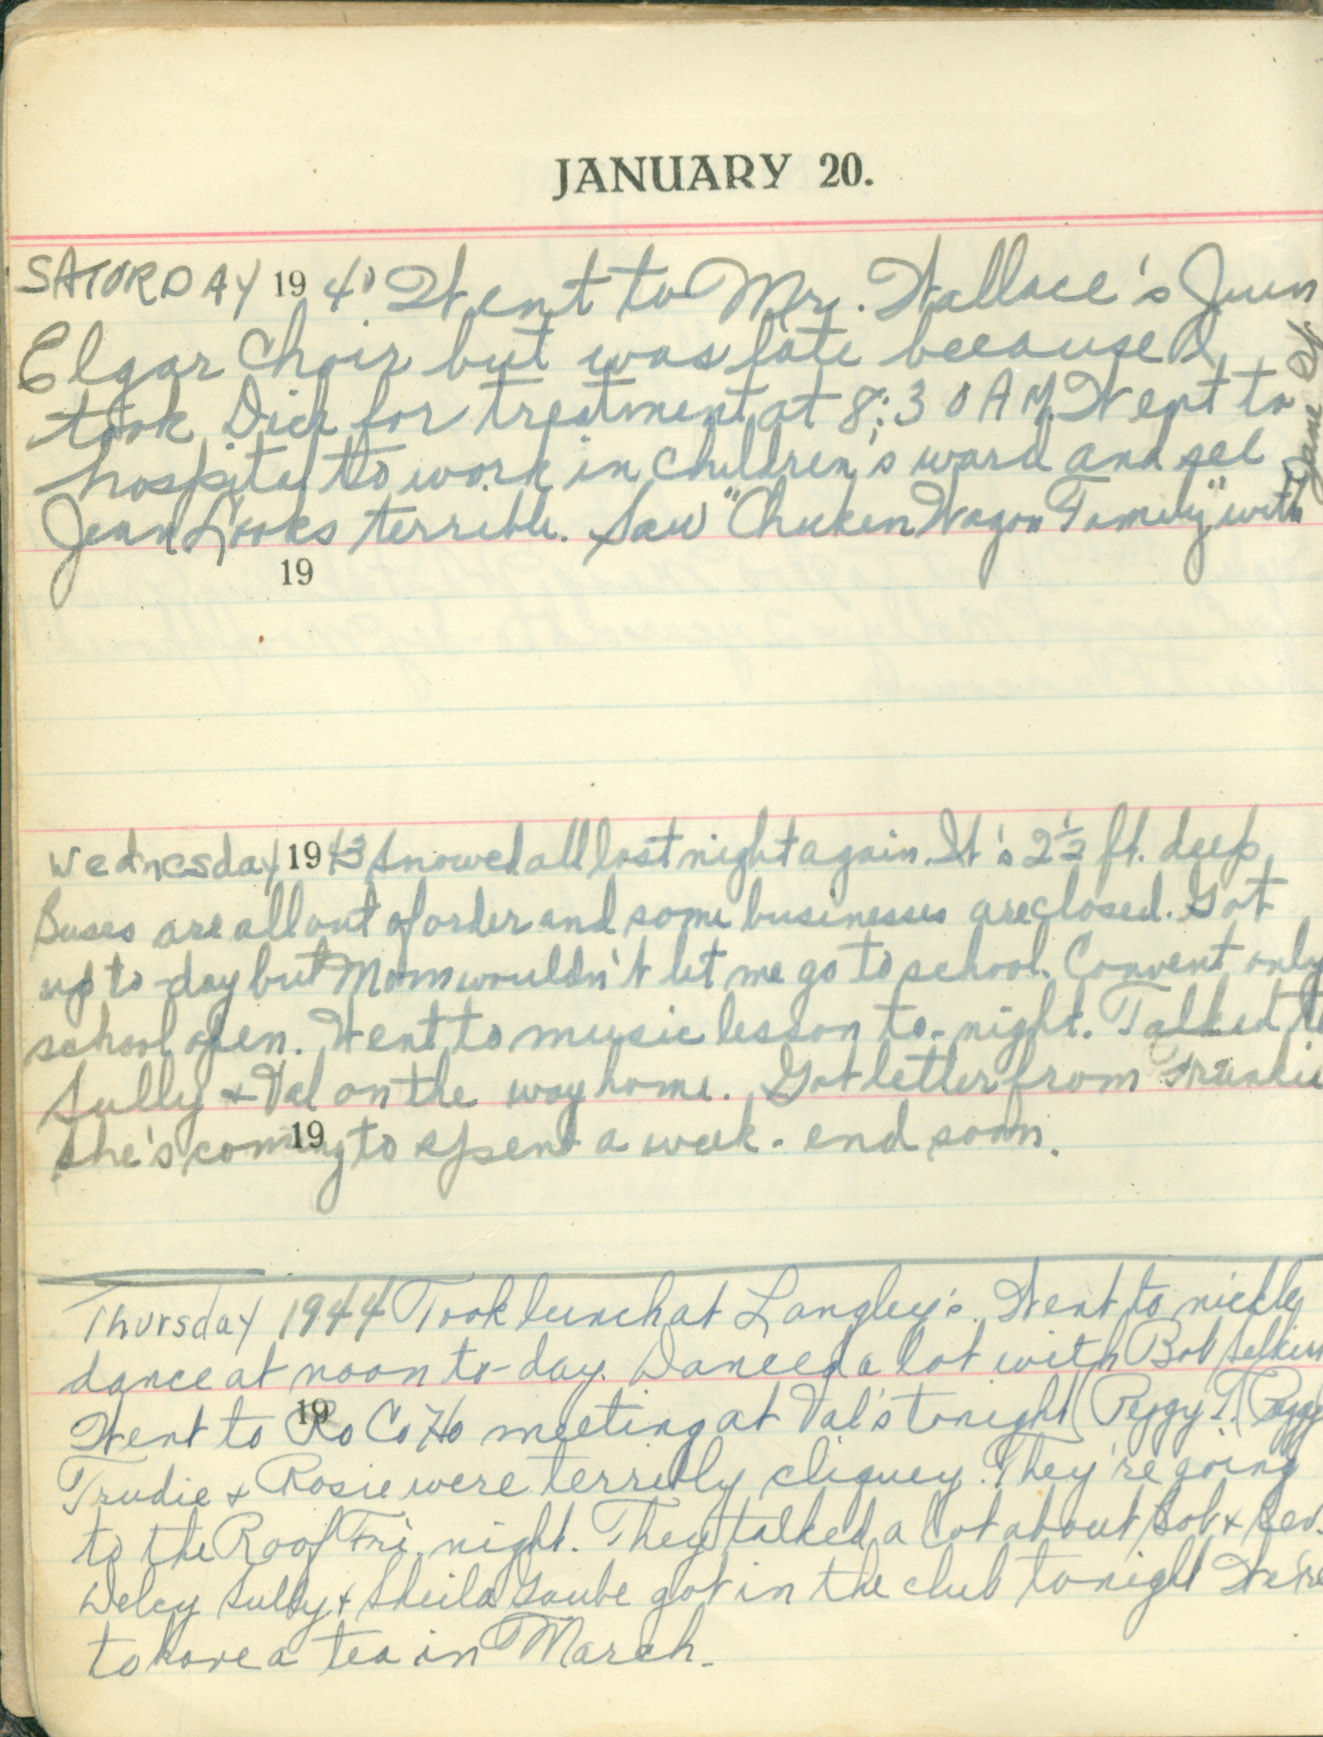 JANUARY 20.
SATURDAY 1940 Went to Mr. Wallace's Juen
Elgar Choir but was late because I
took Dick for treatment at 8:30 AM. Went to
hospital to work in children's ward and see
Jean Looks terrible. Saw "Chicken Wagon Family" with
Jane St.
19
Wednesday 1943 Snowed all last night again. It's 2½ ft. deep.
Buses are all out of order and some businesses are closed. Got
up to-day but Mom wouldn't let me go to school. Convent only
school open. Went to music lesson to-night. Talked to
Sully + Val on the way home. Got letter from Frankie
She's coming to spend a week-end soon.
19
Thursday 1944 Took lunch at Langley's. Went to nickly
dance at noon to-day. Danced a lot with Bob
19
Went to Ro Co Ho meeting at Val's tonight Peggy T. Peggy
Trudie + Rosie were terribly cliquey. They're going
to the Roof Fri. night. They talked a lot about Bob +
Welcy Sully + Sheila Gaube got in the club tonight We're
to have a tea in March.